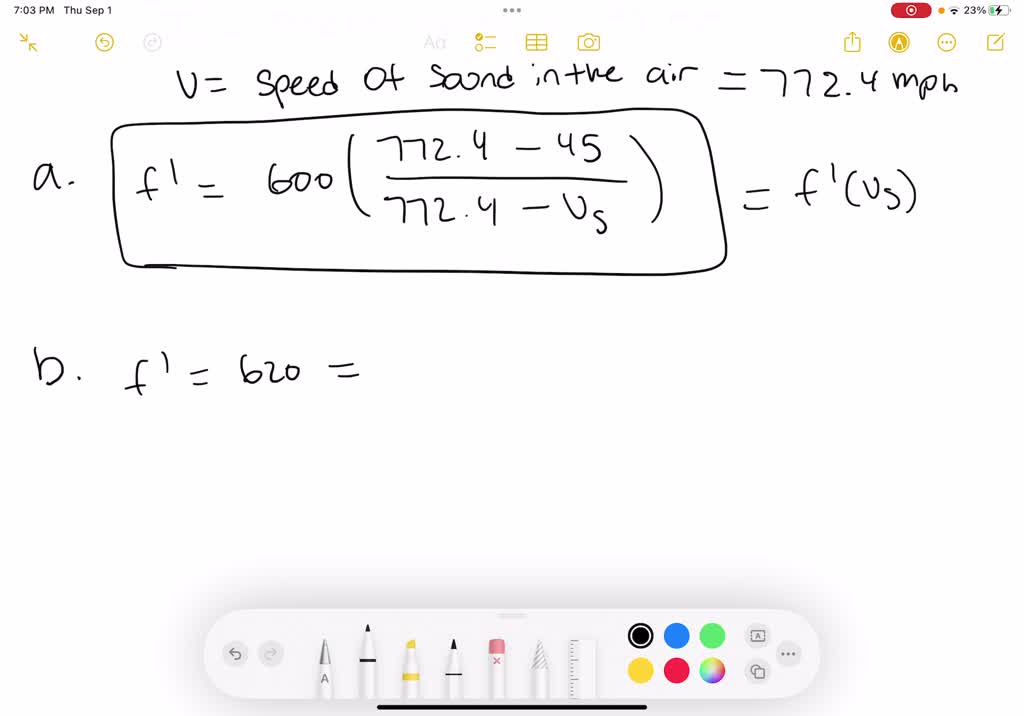 7:03 PM Thu Sep 1
23%
Aa
V = Speed of Sound in the air = 772.4 mph
a. f' = 600 (772.4 - 45 / 772.4 - Vs) = f'(Vs)
b. f' = 620 =
A
A